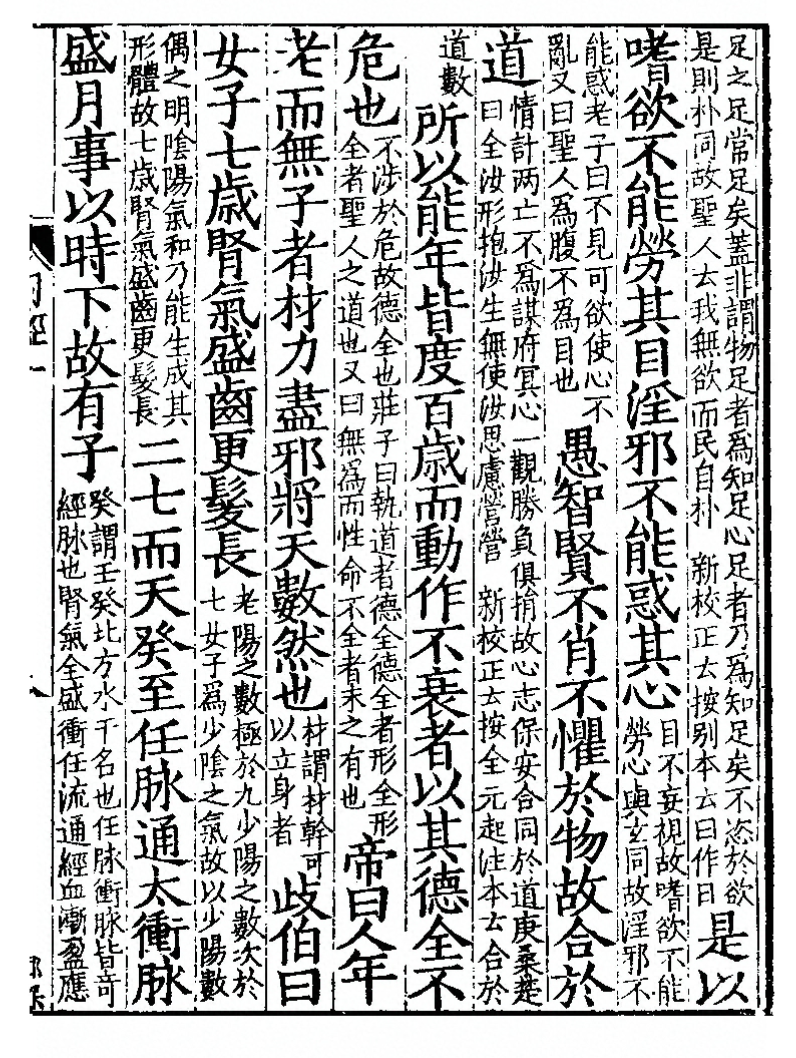 足之足常足矣蓋非謂物足者爲知足心足者乃爲知足矣不恣於欲
是則朴同故聖人云我無欲而民自朴　新校正云按别本云曰作日
是以
嗜欲不能勞其目淫邪不能惑其心
目不妄視故嗜欲不能
勞心與玄同故淫邪不
能惑老子曰不見可欲使心不
亂又曰聖人爲腹不爲目也
愚智賢不肖不懼於物故合於
道
情計两亡不爲謀府冥心一觀勝負俱捐故心志保安合同於道庚桑楚
曰全汝形抱汝生無使汝思慮營營　新校正云按全元起注本云合於
道數
所以能年皆度百歲而動作不衰者以其德全不
危也
不涉於危故德全也莊子曰執道者德全德全者形全形
全者聖人之道也又曰無爲而性命不全者未之有也
帝曰人年
老而無子者材力盡邪將天數然也
材謂材幹可
以立身者
歧伯曰
女子七歲腎氣盛齒更髮長
老陽之數極於九少陽之數次於
七女子爲少陰之氣故以少陽數
偶之明陰陽氣和乃能生成其
形體故七歲腎氣盛齒更髮長
二七而天癸至任脉通太衝脉
盛月事以時下故有子
癸謂壬癸北方水干名也任脉衝脉皆竒
經脉也腎氣全盛衝任流通經血漸盈應